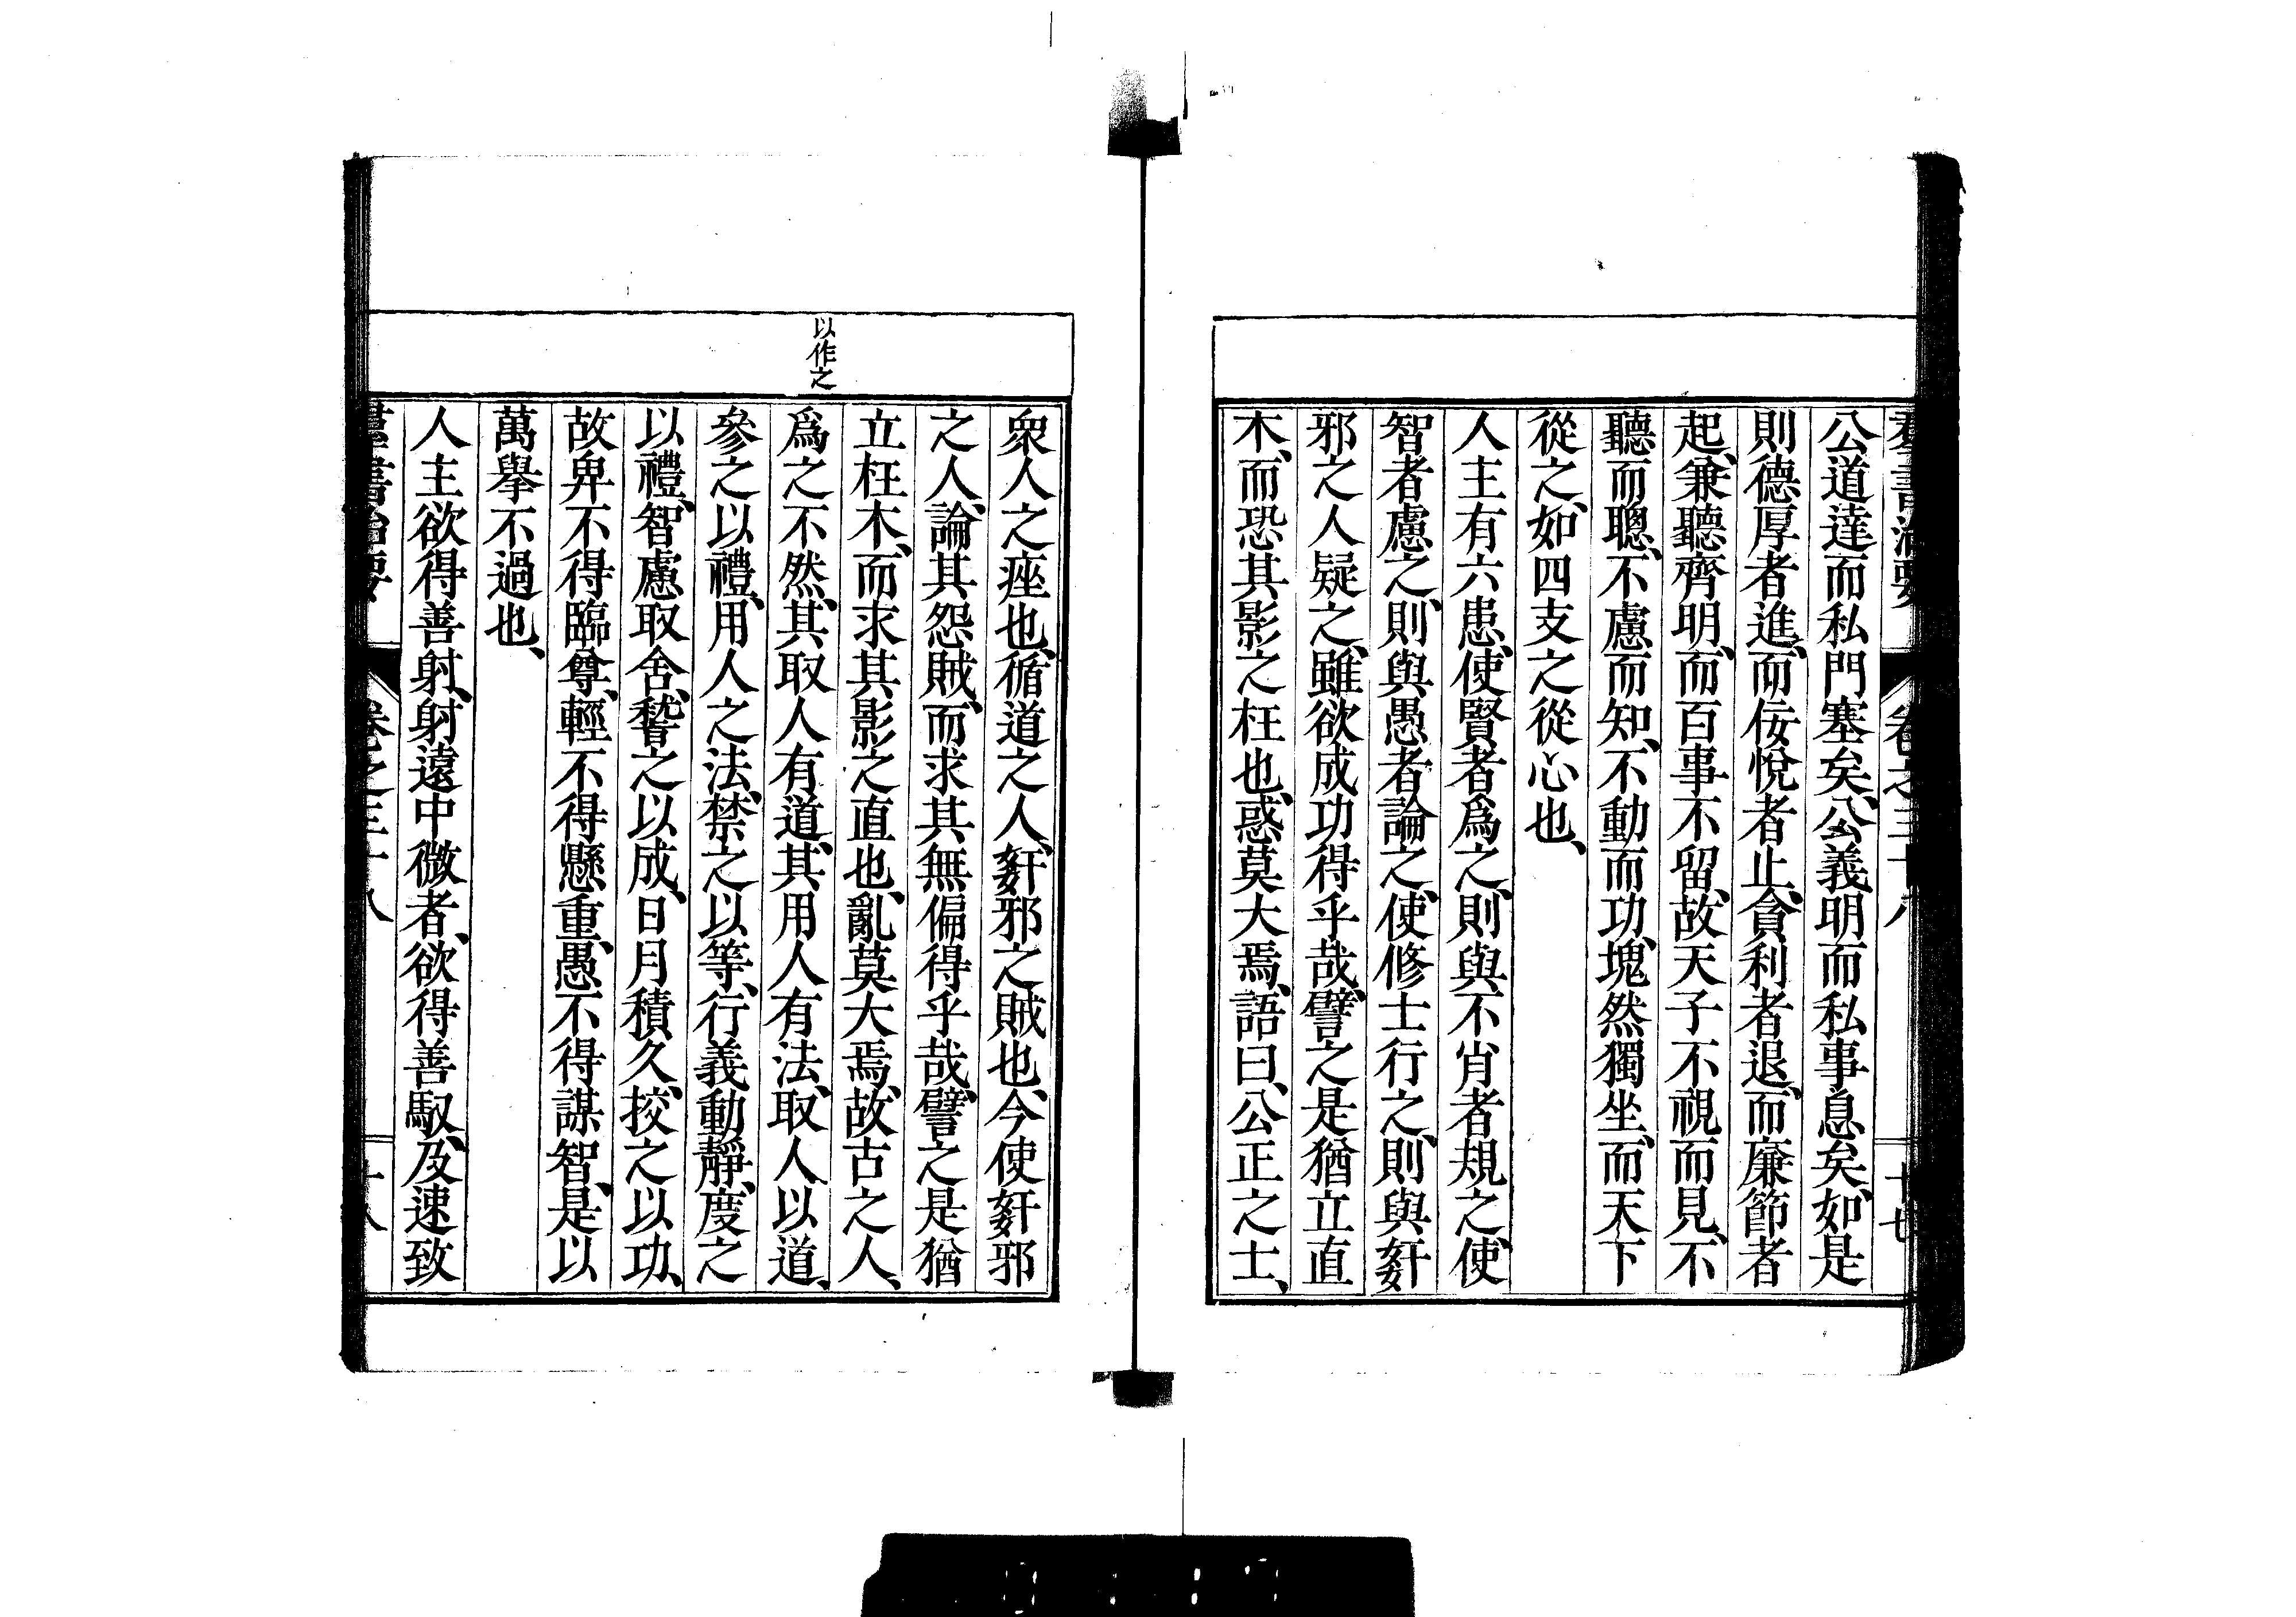 公道達而私門塞矣、公義明而私事息矣、如是
則德厚者進、而佞悅者止、貪利者退、而廉節者
起、兼聽齊明、而百事不留、故天子不視而見、不
聽而聰、不慮而知、不動而功、塊然獨坐、而天下
從之、如四支之從心也、
人主有六患、使賢者爲之、則與不肖者規之、使
智者慮之、則與愚者論之、使修士行之、則與姧
邪之人疑之、雖欲成功得乎哉、譬之是猶立直
木、而恐其影之枉也、惑莫大焉、語曰、公正之士、
衆人之痤也、循道之人、姧邪之賊也、今使姧邪
之人、論其怨賊、而求其無偏得乎哉、譬之是猶
立枉木、而求其影之直也、亂莫大焉、故古之人、
爲之不然、其取人有道、其用人有法、取人以道、
以作之
參之以禮、用人之法、禁之以等、行義動靜、度之
以禮、智慮取舍、稽之以成、日月積久、挍之以功、
故卑不得臨尊、輕不得懸重、愚不得謀智、是以
萬擧不過也、
人主欲得善射、射遠中微者、欲得善馭、及速致
群書治要 卷之三十八